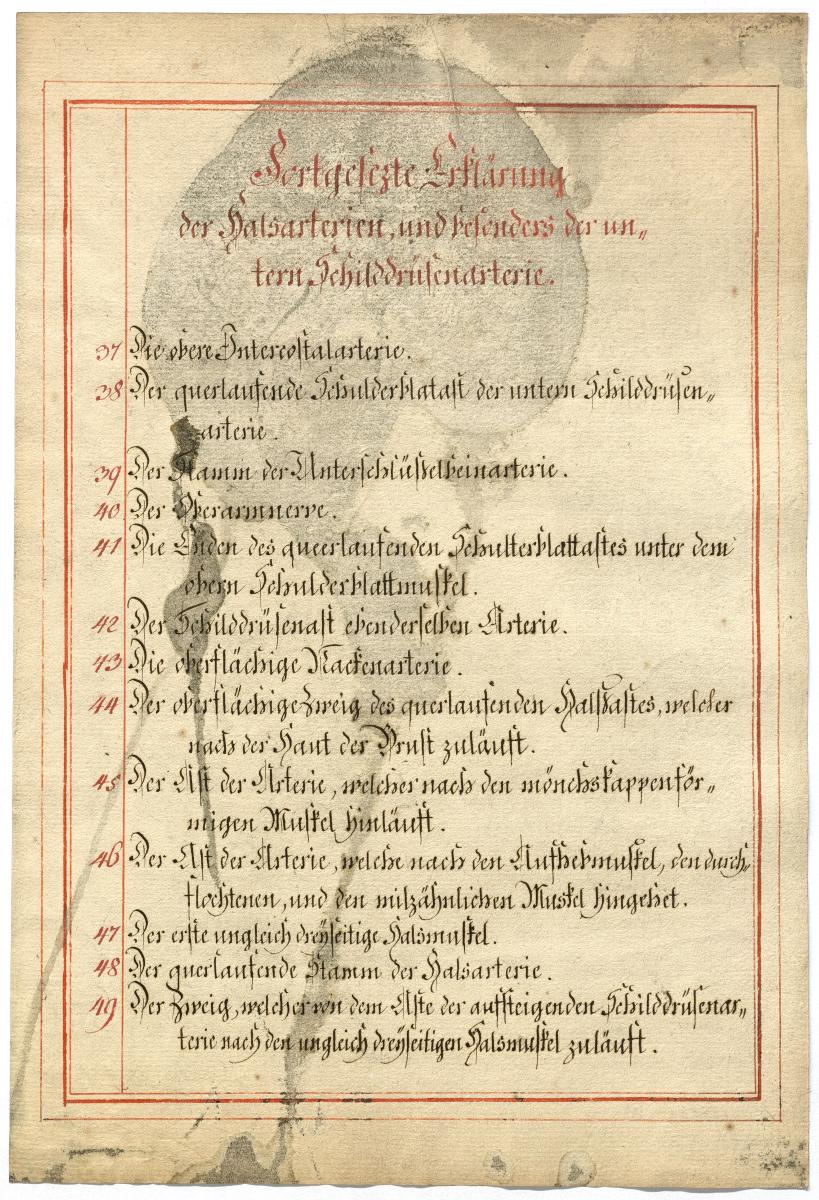 Fortgesezte Erklärung
der Halsarterien, und besonders der un„
tern Schilddrüsenarterie.
37 Die obere Intercostalarterie.
38 Der querlaufende Schulderblatast der untern Schilddrüsen„
arterie.
39 Der Stamm der Unterschlüsselbeinarterie.
40 Der Oberarmnerve.
41 Die Enden des queerlaufenden Schulterblattastes unter dem
obern Schulderblattmuskel.
42 Der Schilddrüsenast ebenderselben Arterie.
43 Die oberflächige Nackenarterie.
44 Der oberflächige Zweig des querlaufenden Halsastes, welcher
nach der Haut der Brust zuläuft.
45 Der Ast der Arterie, welcher nach den mönchskappenför„
migen Muskel hinläuft.
46 Der Ast der Arterie, welche nach den Aufhebmuskel, den durch„
flochtenen, und den milzähnlichen Muskel hingehet.
47 Der erste ungleich dreyseitige Halsmuskel.
48 Der querlaufende Stamm der Halsarterie.
49 Der Zweig, welcher von dem Aste der aufsteigenden Schilddrüsenar„
terie nach den ungleich dreyseitigen Halsmuskel zuläuft.